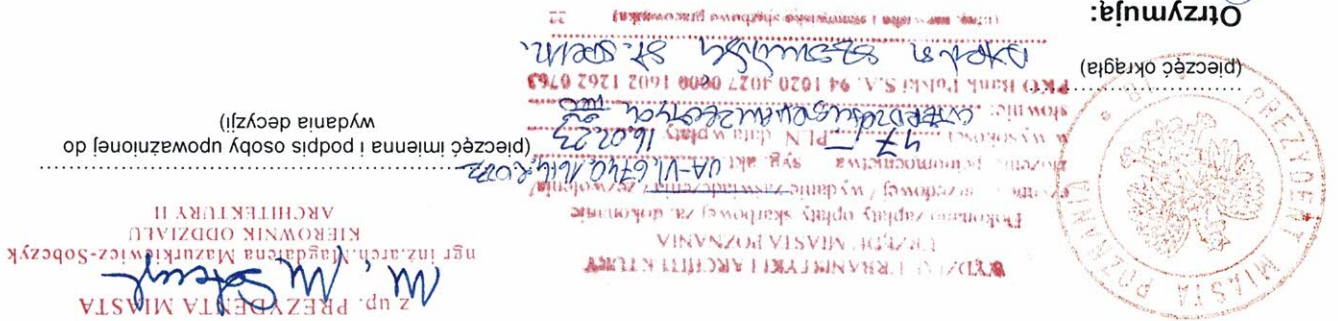 z up. PREZYDENTA MIASTA
mgr inż.arch.Magdalena Mazurkiewicz-Sobczyk
KIEROWNIK ODDZIAŁU
ARCHITEKTURY II
(pieczęć imienna i podpis osoby upoważnionej do
wydania decyzji)
WYDZIAŁ URBANISTYKI I ARCHITEKTURY
URZĘDU MIASTA POZNANIA
Dokonano zapłaty opłaty skarbowej za: dokonanie
czynności urzędowej / wydanie zaświadczenia / zezwolenia/
złożenie pełnomocnictwa syg. akt UA-VI.6740.
w wysokości 47 PLN data wpłaty 16.02.23
słownie:
PKO Bank Polski S.A. 94 1020 4027 0000 1602 1262 0763
(imię, nazwisko i stanowisko służbowe pracownika)
22
PREZYDENT MIASTA POZNANIA
(pieczęć okrągła)
Otrzymują: